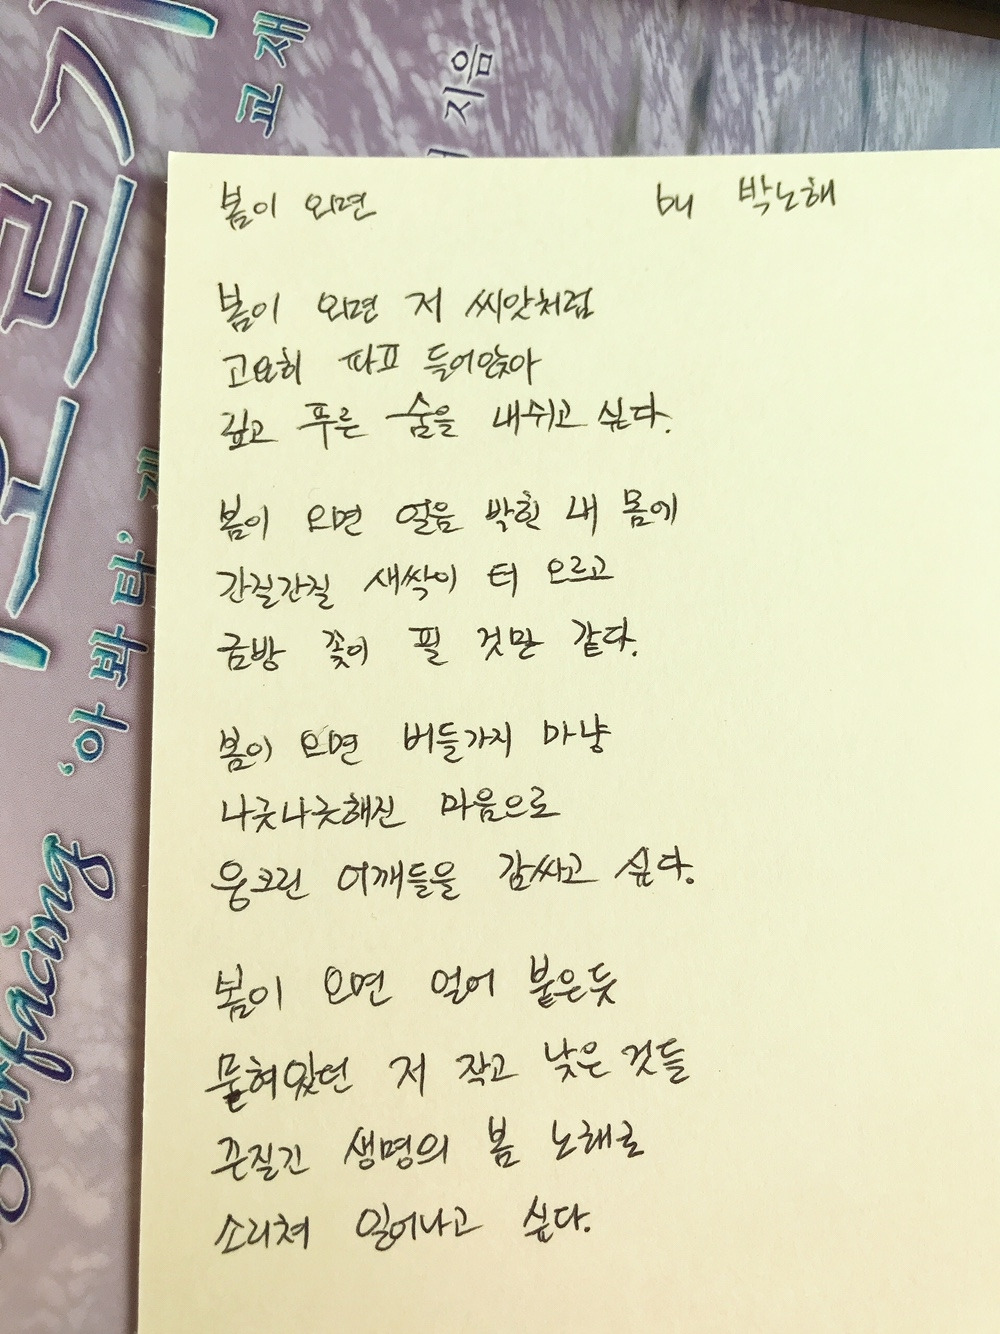 봄이 오면 by 박노해
봄이 오면 저 씨앗처럼
고요히 파묘 들어앉아
깊고 푸른 숨을 내쉬고 싶다.
봄이 오면 얼음 박힌 내 몸에
간질간질 새싹이 터 오르고
금방 꽃이 필 것만 같다.
봄이 오면 버들가지 마냥
나긋나긋해진 마음으로
웅크린 어깨들을 감싸고 싶다.
봄이 오면 얼어 붙은듯
묻혀있던 저 작고 낮은 것들
끈질긴 생명의 봄 노래로
소리쳐 일어나고 싶다.
오르기
교재
지음
'아봐타'
Surfacing